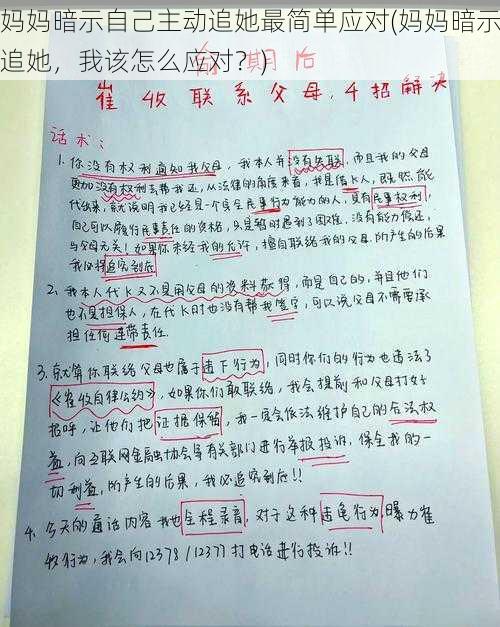 妈妈暗示自己主动追她最简单应对(妈妈暗示
追她，我该怎么应对？)
前期后
崔收联系父母,4招解决
话术:
1.你没有权利通知我父母,我本人并没有失联,而且我的父母
更加没有权利去帮我还,从法律的角度来看,我是借K人,既然能
代出来,就说明我已经是一个完全民事行为能力的人,具有民事权利,
自己可以履行民事责任的资格,只是暂时遇到了困难,没有能力偿还,
与父母无关!如果你未经我的允许,擅自联络我的父母,所产生的后果
我必将追究到底
2、我本人代K又不是用父母的资料获得,而是自己的,并且他们
也不是担保人,在代K时也没有帮我签字,可以说父母不需要承
担任何连带责任
3.就算你联络父母也属于违下行为,同时你们的行为也违法了
《崔收自律公约》,如果你们敢联络,我会提前和父母打好
招呼,让他们把证据保留,我一定会依法维护自己的合法权
益,向互联网金融协会等有关部门进行举报投诉,保全我的一
切利益,所产生的后果,我必追究到底!!
4、今天的通话内容我也全程录音,对于这种违规行为,曝力崔
收行为,我会向12378/12377打电话进行投诉!!